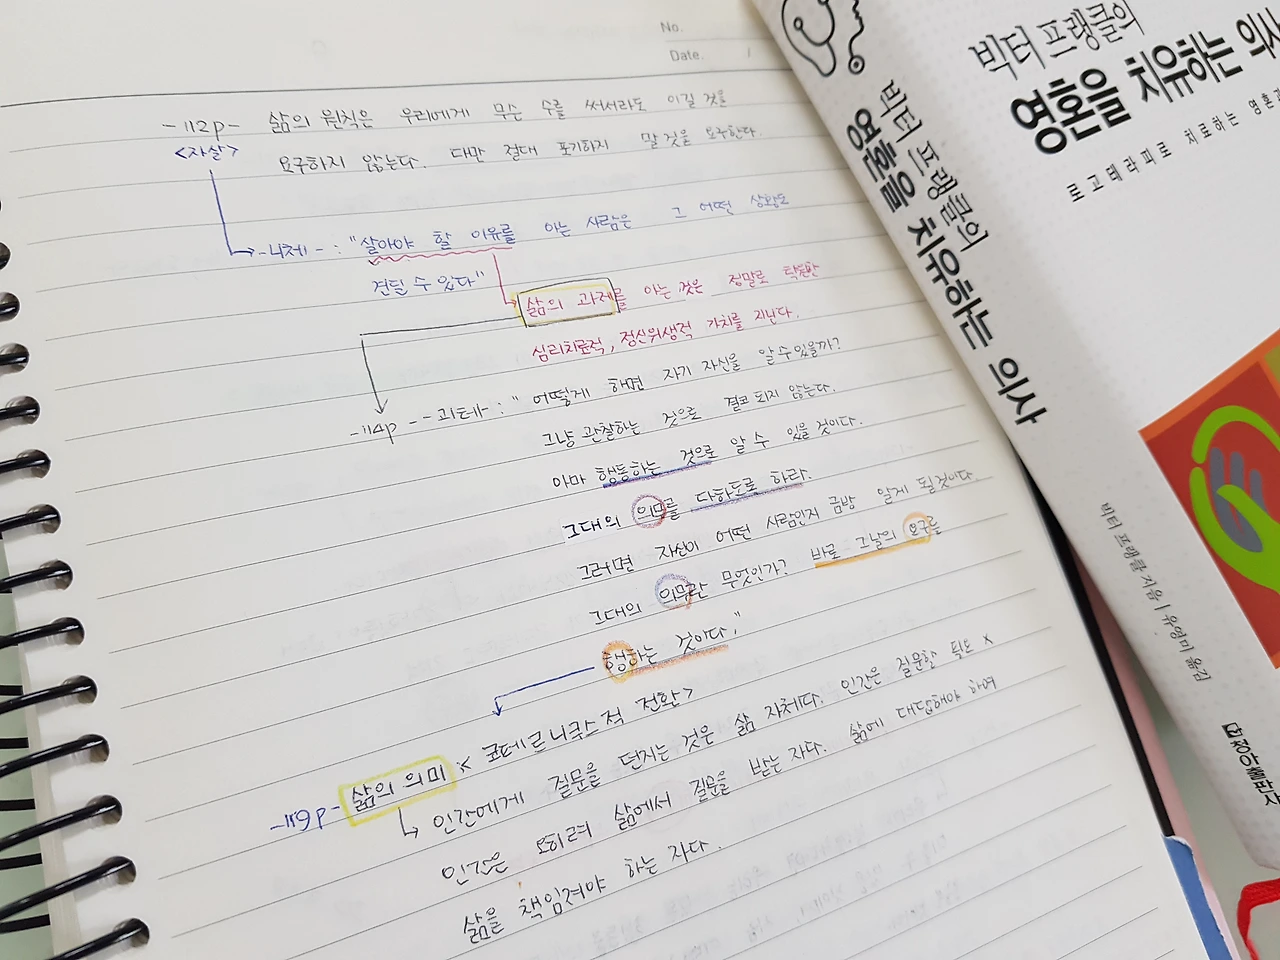 No.
Date. /
-112p- 삶의 원칙은 우리에게 무슨 수를 써서라도 이길 것을
<자살> 요구하지 않는다. 다만 절대 포기하지 말 것을 요구한다.
-니체- : "살아야 할 이유를 아는 사람은 그 어떤 상황도
견딜 수 있다"
삶의 과제를 아는 것은 정말로 탁월한
심리치료적, 정신위생적 가치를 지닌다.
-114p --괴테- : " 어떻게 하면 자기 자신을 알 수 있을까?
그냥 관찰하는 것으로 결코 되지 않는다.
아마 행동하는 것으로 알 수 있을 것이다.
그대의 의무를 다하도록 하라.
그러면 자신이 어떤 사람인지 금방 알게 될것이다.
그대의 의무란 무엇인가? 바로 그날의 요구를
행하는 것이다."
-119p- 삶의 의미 : < 코페르니쿠스적 전환>
인간에게 질문을 던지는 것은 삶 자체다. 인간은 질문할 필요 x
인간은 오히려 삶에서 질문을 받는 자다. 삶에 대답해야 하며
삶을 책임져야 하는 자다.
빅터 프랭클의
영혼을 치유하는 의사
로고테라피로 치료하는 영혼과
빅터 프랭클의
영혼을 치유하는 의사
빅터 프랭클 지음 | 유영미 옮김
청아출판사